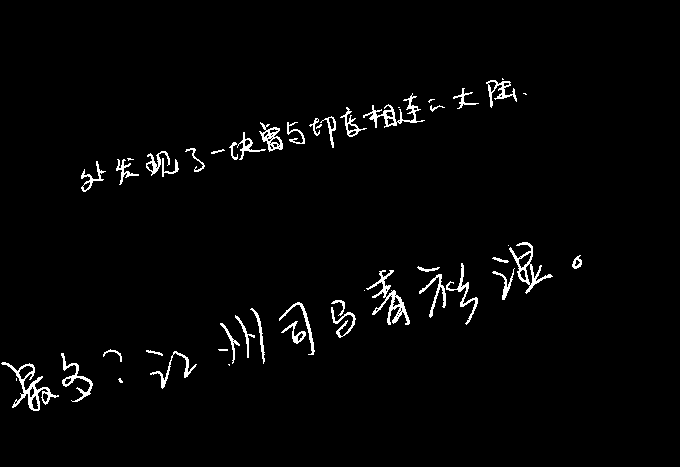 处发现了一块曾与印度相连的大陆.
最多?江州司马青衫湿。